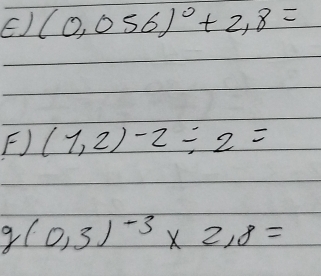 E) (0,056)⁰ + 2,8 =
F) (1,2) ⁻² ÷ 2 =
g (0,3) ⁻³ x 2,8 =